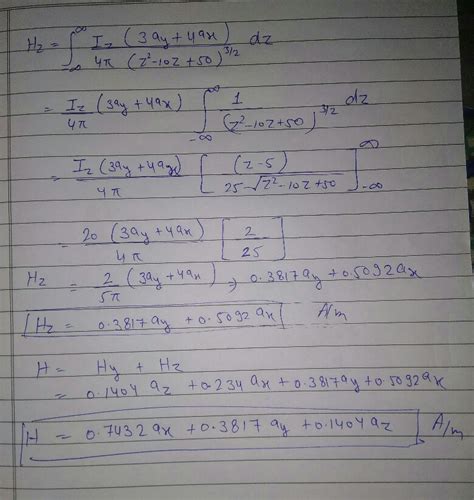 Hz = ∫_{-∞}^{∞} Iz (3ay + 4ax) / 4π (z²-10z+50)^{3/2} dz
= Iz (3ay + 4ax) / 4π ∫_{-∞}^{∞} 1 / (z²-10z+50)^{3/2} dz
= Iz (3ay + 4ax) / 4π [ (z-5) / 25√z²-10z+50 ]_{-∞}^{∞}
= 20 (3ay + 4ax) / 4π [ 2 / 25 ]
Hz = 2 / 5π (3ay + 4ax) ⇒ 0.3817 ay + 0.5092 ax
Hz = 0.3817 ay + 0.5092 ax A/m
H = Hy + Hz
= 0.1404 az + 0.234 ax + 0.3817 ay + 0.5092 ax
H = 0.7432 ax + 0.3817 ay + 0.1404 az A/m